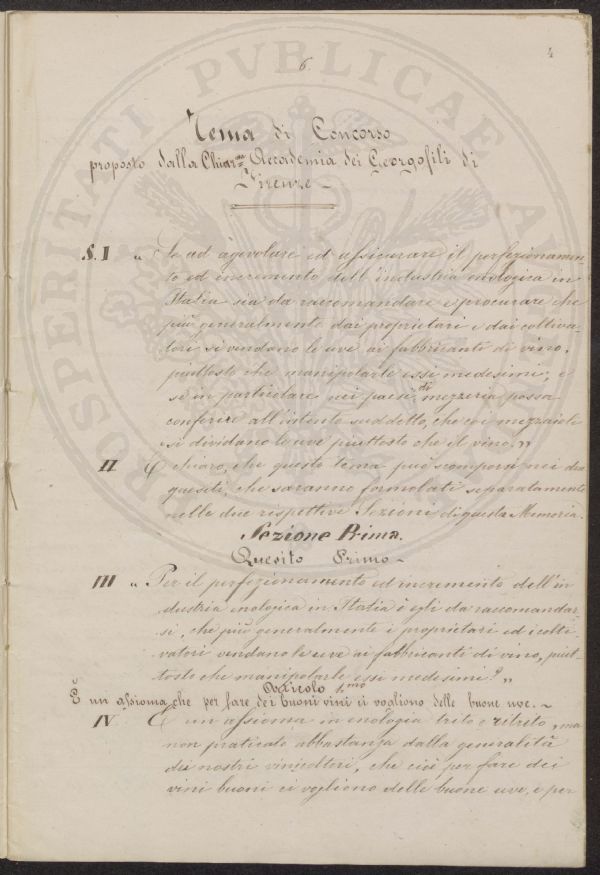 4
6.
Tema di Concorso
proposto dalla Chiar.ma Accademia dei Georgofili di
Firenze
S. I „ Se ad agevolare ed assicurare il perfezionamen
to ed incremento dell'industria enologica in
Italia sia da raccomandare e procurare che
più generalmente dai proprietari e dai coltiva-
tori si vendano le uve ai fabbricanti di vino,
piuttosto che manipolarle essi medesimi; e
se in particolare nei paesi di mezzeria possa
conferire all'intento suddetto, che coi mezzaioli
si dividano le uve piuttosto che il vino. „
II È chiaro, che questo tema può scomporsi nei due
quesiti, che saranno formolati separatamente
nelle due respettive Sezioni di questa Memoria.
Sezione Prima.
Quesito Primo
III „ Per il perfezionamento ed incremento dell'in
dustria enologica in Italia è egli da raccomandar
si, che più generalmente i proprietari ed i colti-
vatori vendano le uve ai fabbricanti di vino, piut-
tosto che manipolarle essi medesimi? „
Articolo 1.mo
È un assioma, che per fare dei buoni vini ci vogliono delle buone uve.
IV È un assioma in enologia trito e ritrito, ma
non praticato abbastanza dalla generalità
dei nostri vinicoltori, che cioè per fare dei
vini buoni ci vogliono delle buone uve, e per
PROSPERITATI PVBLICAE AV